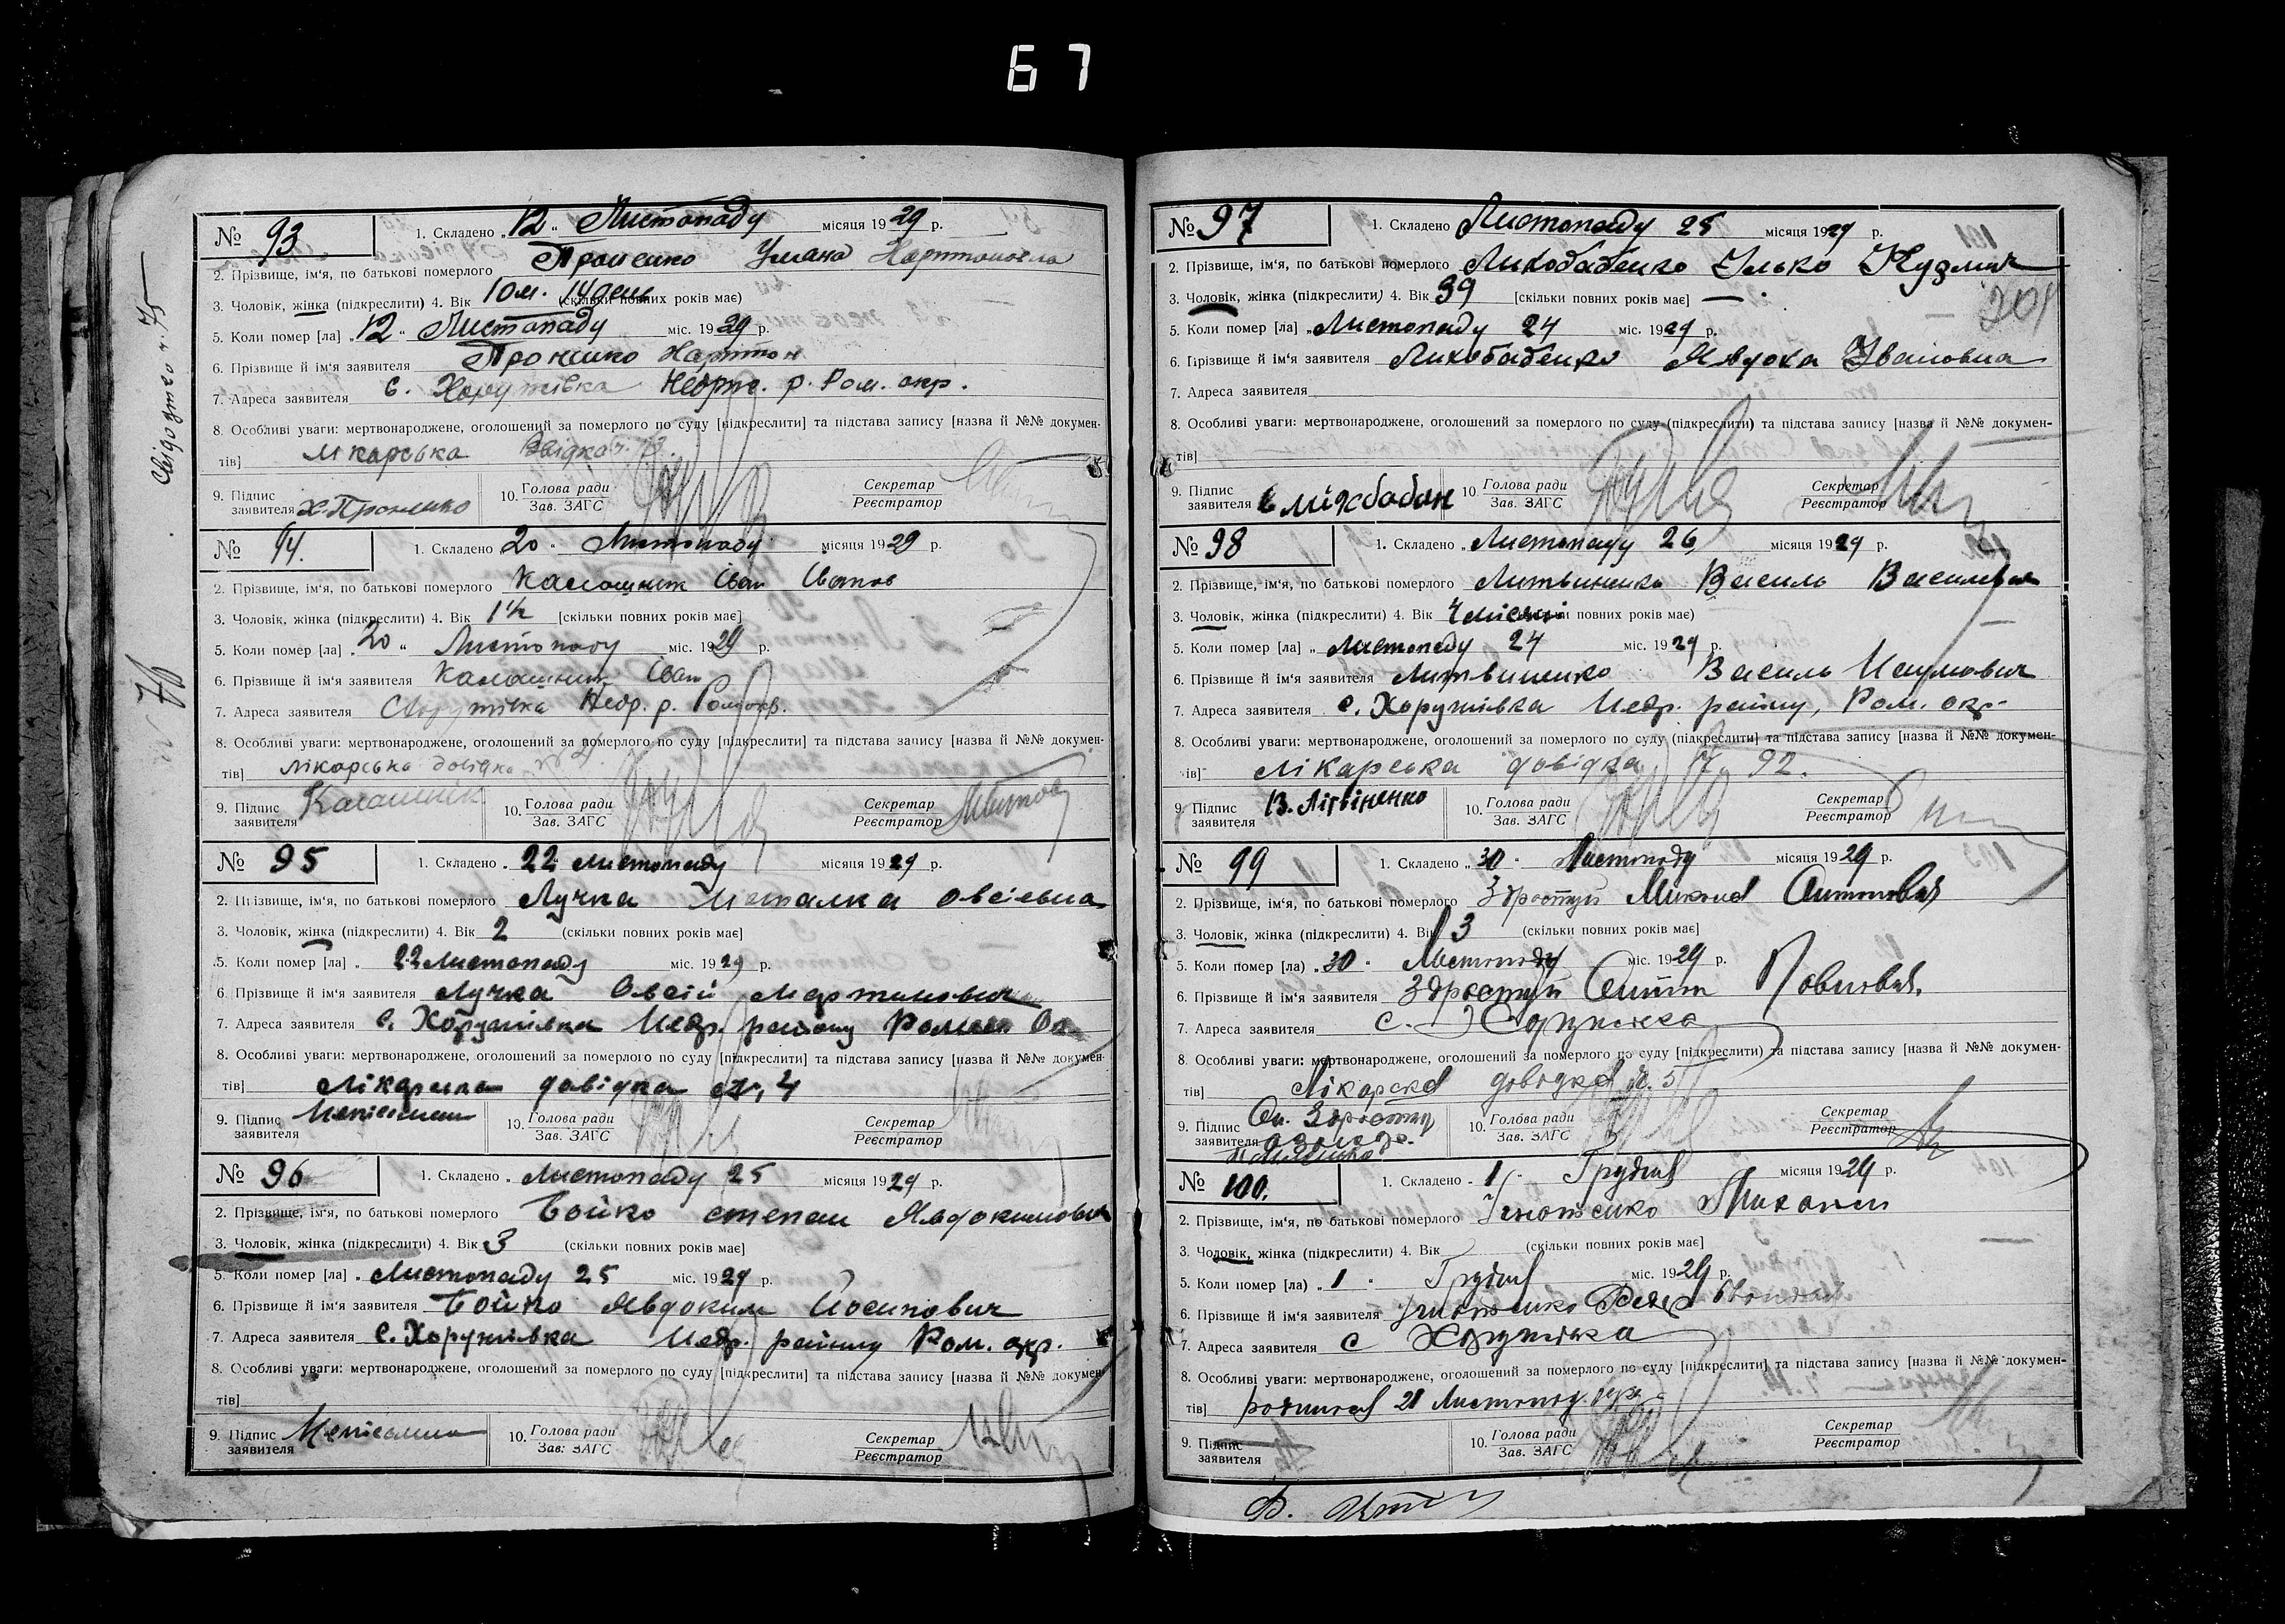 67
№ 93
1. Складено „12“ Листопаду місяця 1929 р.
2. Прізвище, ім'я, по батькові померлого Проненко
3. Чоловік, жінка (підкреслити) 4. Вік 10 м. 14 день (скільки повних років має)
5. Коли помер [ла] „12“ Листопаду міс. 1929 р.
6. Прізвище й ім'я заявителя Проненко
7. Адреса заявителя с. Хоружівка Недр. р. Ром. окр.
8. Особливі уваги: мертвонароджене, оголошений за померлого по суду [підкреслити] та підстава запису [назва й №№ докумен-
тів] лікарська
9. Підпис заявителя Х. Проненко 10. Голова ради Зав. ЗАГС Секретар Реєстратор
Свідоцтво ч. 75
76
№ 94.
1. Складено 20 “ Листопаду місяця 1929 р.
2. Прізвище, ім'я, по батькові померлого Калашник Іван Іванов
3. Чоловік, жінка (підкреслити) 4. Вік 1½ [скільки повних років має]
5. Коли помер [ла] „20“ Листопаду міс. 1929 р.
6. Прізвище й ім'я заявителя Калашник Іван
7. Адреса заявителя С. Хоружівка Недр. р. Ром. окр.
8. Особливі уваги: мертвонароджене, оголошений за померлого по суду [підкреслити] та підстава запису [назва й №№ докумен-
тів] лікарська довідка №
9. Підпис заявителя Калашник 10. Голова ради Зав. ЗАГС Секретар Реєстратор
№ 95
1. Складено „22 листопаду місяця 1929 р.
2. Прізвище, ім'я, по батькові померлого Лучка Наталка Овсіевна
3. Чоловік, жінка (підкреслити) 4. Вік 2 (скільки повних років має]
5. Коли помер [ла] „ 22 Листопаду міс. 1929 р.
6. Прізвище й ім'я заявителя Лучка Овсій Мартинович
7. Адреса заявителя с. Хоружівка Недр. району Ромен
8. Особливі уваги: мертвонароджене, оголошений за померлого по суду [підкреслити] та підстава запису [назва й №№ докумен-
тів] Лікарська довідка
9. Підпис заявителя Неписьмен 10. Голова ради Зав. ЗАГС Секретар Реєстратор
№ 96
1. Складено „ Листопаду 25 місяця 1929 р.
2. Прізвище, ім'я, по батькові померлого Бойко степан Явдокимович
3. Чоловік, жінка (підкреслити) 4. Вік 3 (скільки повних років має]
5. Коли помер [ла] „ Листопаду 25 міс. 1929 р.
6. Прізвище й ім'я заявителя Бойко Явдоким Йосипович
7. Адреса заявителя с. Хоружівка Недр. району Ром. окр.
8. Особливі уваги: мертвонароджене, оголошений за померлого по суду [підкреслити] та підстава запису [назва й №№ докумен-
тів]
9. Підпис заявителя 10. Голова ради Зав. ЗАГС Секретар Реєстратор
№ 97
1. Складено Листопаду 25 місяця 1929 р.
2. Прізвище, ім'я, по батькові померлого Лихобабенко Ілько Кузмич
3. Чоловік, жінка (підкреслити) 4. Вік 39 [скільки повних років має]
5. Коли помер [ла] „Листопаду 24 міс. 1929 р.
6. Прізвище й ім'я заявителя Лихобабенко Явдоха Івановна
7. Адреса заявителя
8. Особливі уваги: мертвонароджене, оголошений за померлого по суду (підкреслити) та підстава запису [назва й №№ докумен-
тів]
9. Підпис заявителя 10. Голова ради Зав. ЗАГС Секретар Реєстратор
№ 98
1. Складено „Листопаду 26 місяця 1929 р.
2. Прізвище, ім'я, по батькові померлого Литвиненко Василь Васильович
3. Чоловік, жінка (підкреслити) 4. Вік 4 місяці повних років має)
5. Коли помер [ла] „ Листопаду 24 міс. 1929 р.
6. Прізвище й ім'я заявителя Литвиненко Василь Наумович
7. Адреса заявителя с. Хоружівка Недр. району, Ром. окр.
8. Особливі уваги: мертвонароджене, оголошений за померлого по суду (підкреслити] та підстава запису [назва й №№ докумен-
тів] Лікарська довідка № 92.
9. Підпис заявителя В. Літвіненко 10. Голова ради Зав. ЗАГС Секретар Реєстратор
№ 99
1. Складено „30“ Листопаду місяця 1929 р.
2. Прізвище, ім'я, по батькові померлого Здростуй Микола Антонович
3. Чоловік, жінка (підкреслити) 4. Вік 3 (скільки повних років має]
5. Коли помер [ла) „30“ Листопаду міс. 1929 р.
6. Прізвище й ім'я заявителя Здростуй Антон
7. Адреса заявителя с. Хоружівка
8. Особливі уваги: мертвонароджене, оголошений за померлого по суду [підкреслити) та підстава запису [назва й №№ докумен-
тів] Лікарска довідка
9. Підпис заявителя 10. Голова ради Зав. ЗАГС Секретар Реєстратор
№ 100.
1. Складено „1“ Грудня місяця 1929 р.
2. Прізвище, ім'я, по батькові померлого Ігнатенко
3. Чоловік, жінка (підкреслити) 4. Вік (скільки повних років має]
5. Коли помер [ла) „1“ Грудня міс. 1929 р.
6. Прізвище й ім'я заявителя Ігнатенко
7. Адреса заявителя с Хоружівка
8. Особливі уваги: мертвонароджене, оголошений за померлого по суду [підкреслити] та підстава запису [назва й №№ докумен-
тів] родился 21 Листопад.
9. Підпис заявителя 10. Голова ради Зав. ЗАГС Секретар Реєстратор